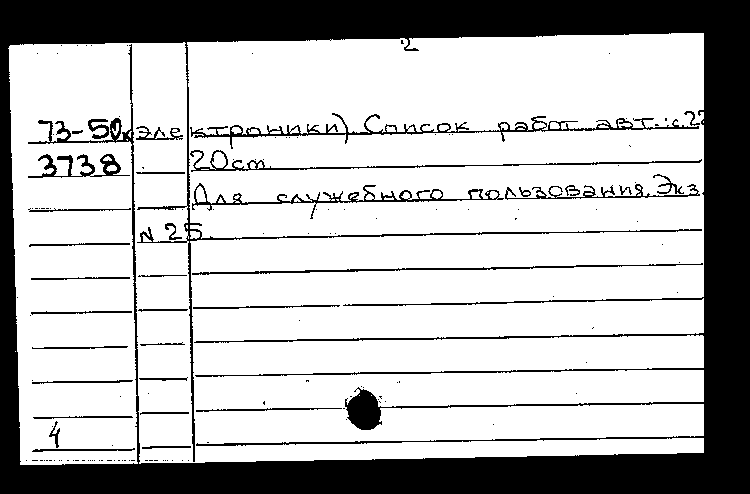 2
73-50к электроники). Список работ авт.: с.22
3738 20см.
Для служебного пользования. Экз.
N 25.
4